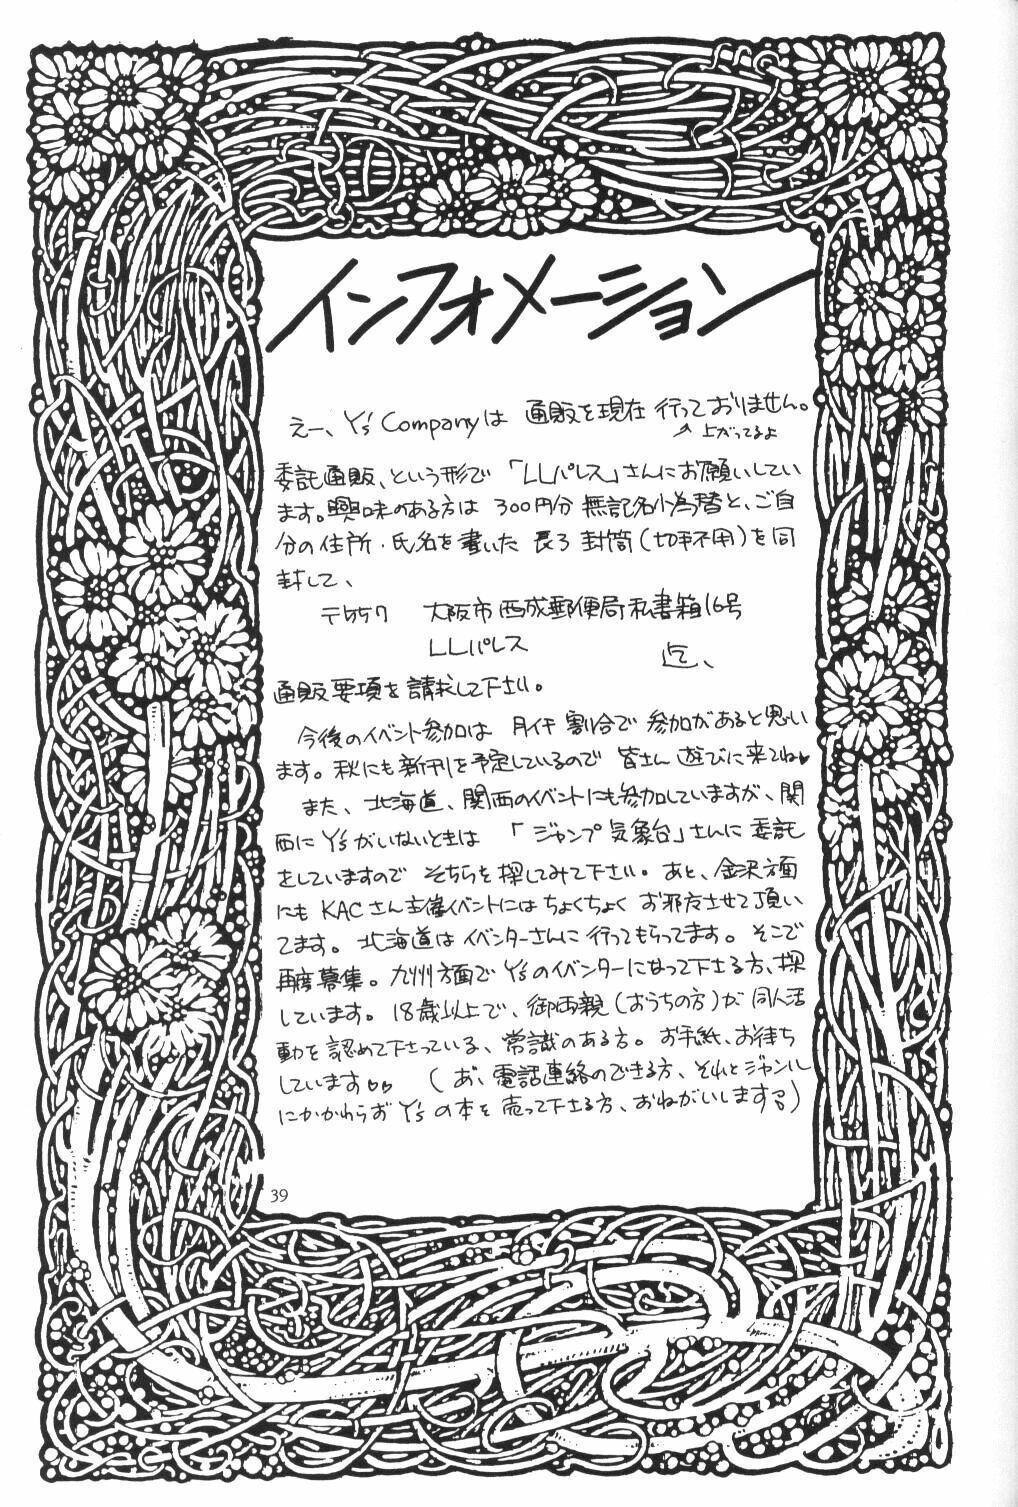 インフォメーション
えー、Y's Companyは 通販を現在 行っておりません。
上がってるよ
委託通販、という形で「LLパレス」さんにお願いしてい
ます。興味のある方は 300円分 無記名小為替と、ご自
分の住所・氏名を書いた 長3 封筒(切手不用)を同
封して、
〒557 大阪市西成郵便局私書箱16号
LLパレス
迄、
通販要項を請求して下さい。
今後のイベント参加は 月イチ 割合で 参加があると思い
ます。秋にも新刊を予定しているので 皆さん 遊びに来てね♥
また、北海道、関西のイベントにも参加していますが、関
西に Y'sがいないときは 「ジャンプ気象台」さんに委託
をしていますので そちらを探してみて下さい。あと、金沢方面
にも KACさん主催イベントにはちょくちょく お邪魔させて頂い
てます。北海道はイベンターさんに行ってもらってます。そこで
再度募集。九州方面でY'sのイベンターになって下さる方、探
しています。18歳以上で、御両親(おうちの方)が同人活
動を認めて下さっている、常識のある方。お手紙、お待ち
しています♥♥ (あ、電話連絡のできる方、それとジャンル
にかかわらずY'sの本を売って下さる方、おねがいします)
39